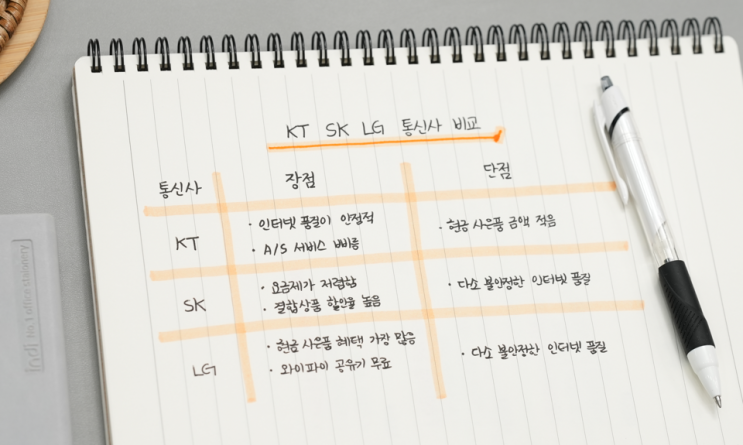 KT SK LG 통신사 비교
통신사 장점 단점
KT
· 인터넷 품질이 안정적
· A/S 서비스 빠름
· 현금 사은품 금액 적음
SK
· 요금제가 저렴함
· 결합상품 할인율 높음
· 다소 불안정한 인터넷 품질
LG
· 현금 사은품 혜택 가장 많음
· 와이파이 공유기 무료
· 다소 불안정한 인터넷 품질